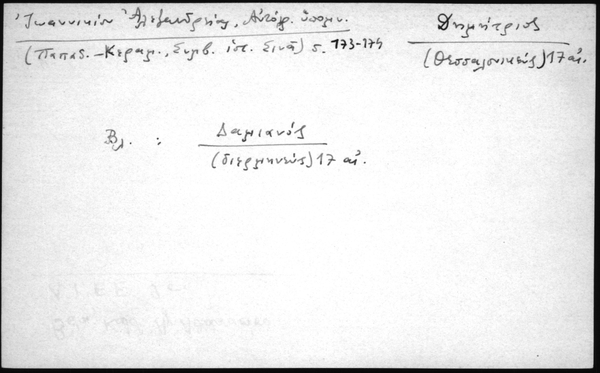 Ἰωαννικίου Ἀλεξανδρείας, Αὐτόγρ. ὑπομν.
(Παπαδ.-Κεραμ., Συμβ. ἱστ. Σινᾶ) σ. 173-174
Δημήτριος
(Θεσσαλονικεύς) 17 αἰ.
Βλ. : Δαμιανός
(διερμηνεύς) 17 αἰ.